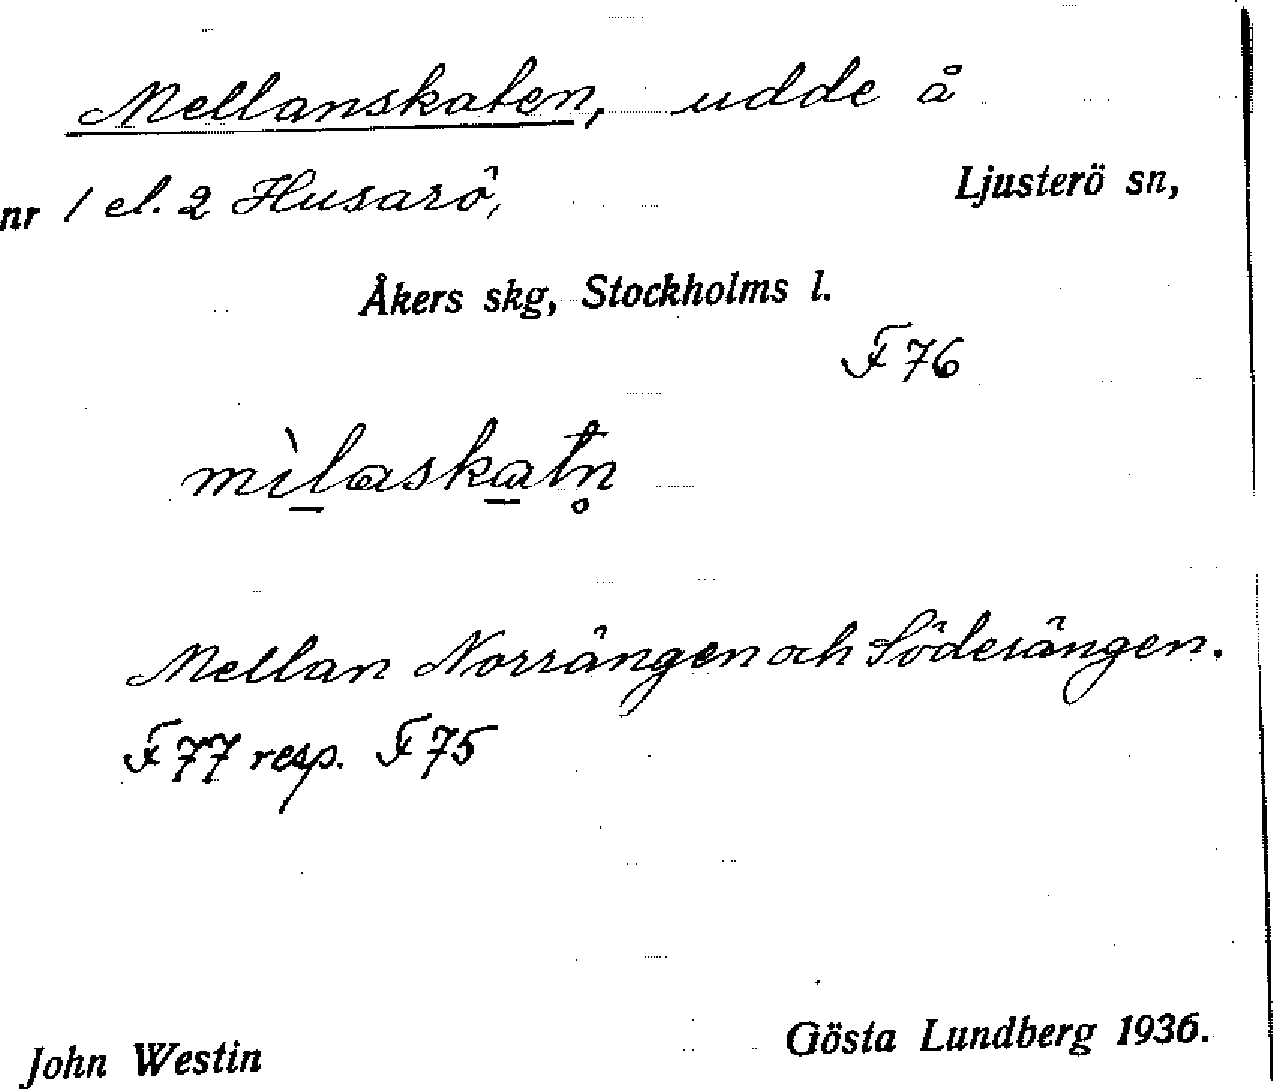 Mellanskaten, udde å
nr 1 el. 2 Husarö, Ljusterö sn,
Åkers skg, Stockholms l.
F 76
mìlaskatn̥
Mellan Norrängen och Söderängen.
F 77 resp. F 75
John Westin Gösta Lundberg 1936.